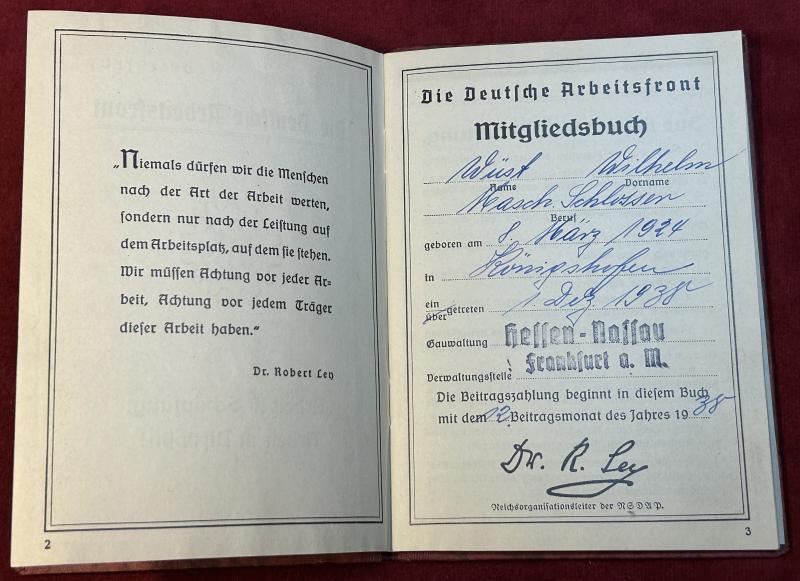 „Niemals dürfen wir die Menschen
nach der Art der Arbeit werten,
sondern nur nach der Leistung auf
dem Arbeitsplatz, auf dem sie stehen.
Wir müssen Achtung vor jeder Ar-
beit, Achtung vor jedem Träger
dieser Arbeit haben.“
Dr. Robert Ley
2
Die Deutsche Arbeitsfront
Mitgliedsbuch
Wüst Wilhelm
Name Vorname
Masch. Schlosser
Beruf
geboren am 8. März 1924
in Königshofen
ein
über getreten 1 Dez. 1938
Gauwaltung Hessen-Nassau
Verwaltungsstelle Frankfurt a. M.
Die Beitragszahlung beginnt in diesem Buch
mit dem 12. Beitragsmonat des Jahres 1938
Dr. R. Ley
Reichsorganisationsleiter der NSDAP.
3